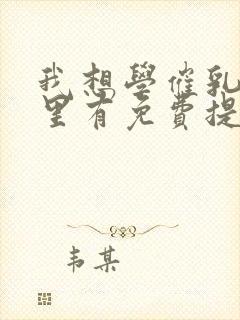 我想學催乳
里有免費提
韦某